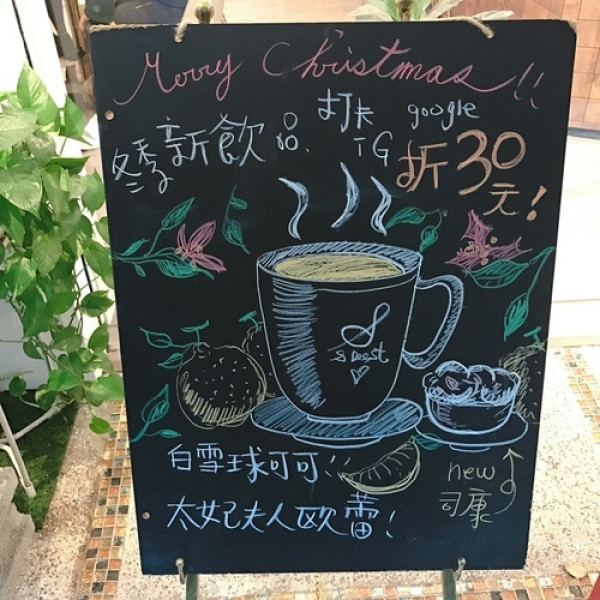 Merry Christmas!!
冬季新飲品、
打卡 google
IG
折30元!
白雪球可可!!
太妃夫人欧蕾!
new
司康